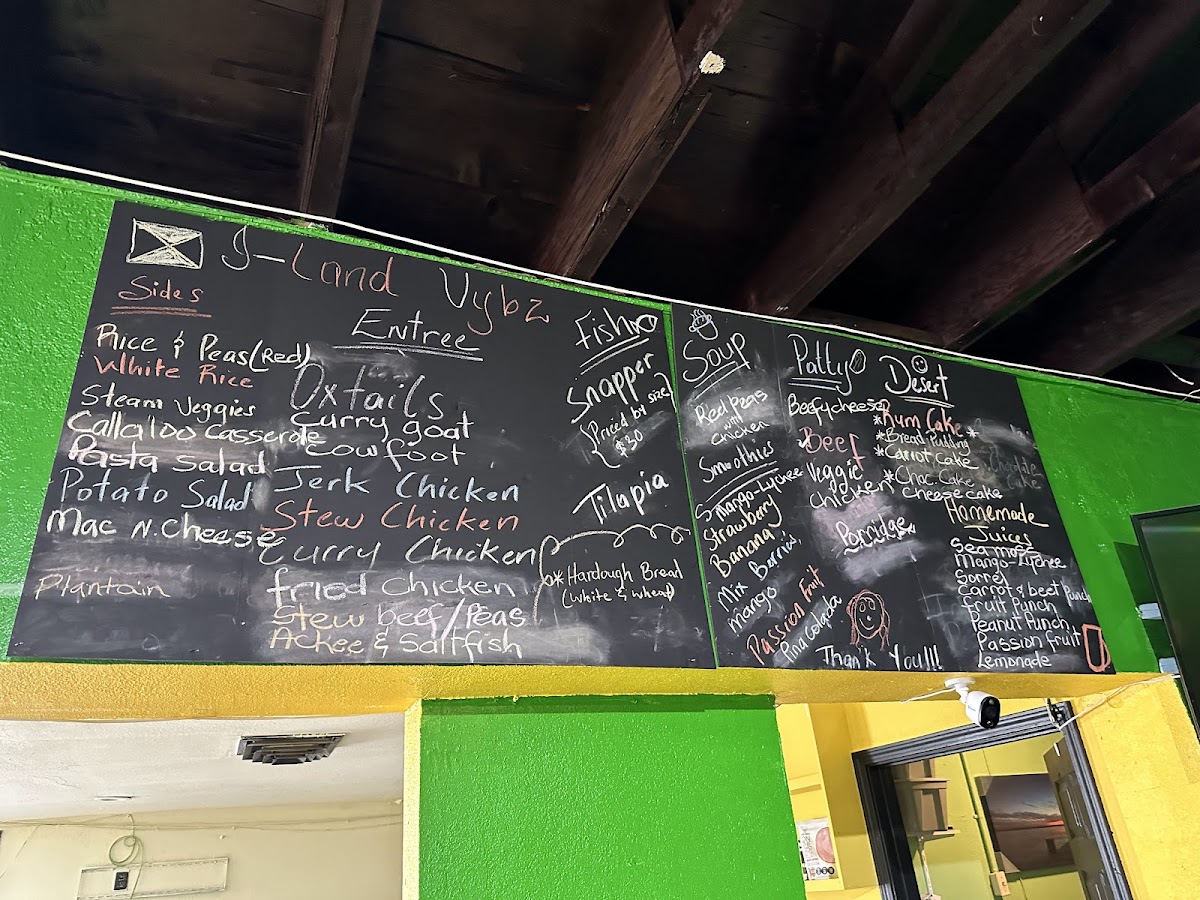 I-Land Vybz
Sides
Rice & Peas (Red)
White Rice
Steam Veggies
Callaloo Casserole
Pasta Salad
Potato Salad
Mac N. Cheese
Plantain
Entree
Oxtails
Curry goat
cowfoot
Jerk Chicken
Stew Chicken
Curry Chicken
fried Chicken
Stew beef/Peas
Ackee & Saltfish
Fish
Snapper
(Priced by size)
$30
Tilapia
* Hardough Bread
(White & wheat)
Soup
Red Peas
with
Chicken
Smoothies
Mango-Lychee
Strawberry
Banana
Mix Berries
Mango
Passion fruit
Pina Colada
Patty
Beefycheese
Beef
Veggie
Chicken
Porridge
Desert
*Rum Cake*
*Bread Pudding
*Carrot Cake
*Choc. Cake
Cheese cake
Chocolate
Cake
Homemade
Juices
Sea moss
Mango-Lychee
Sorrel
Carrot & beet Punch
Fruit Punch
Peanut Punch
Passion fruit
Lemonade
Thank You!!!